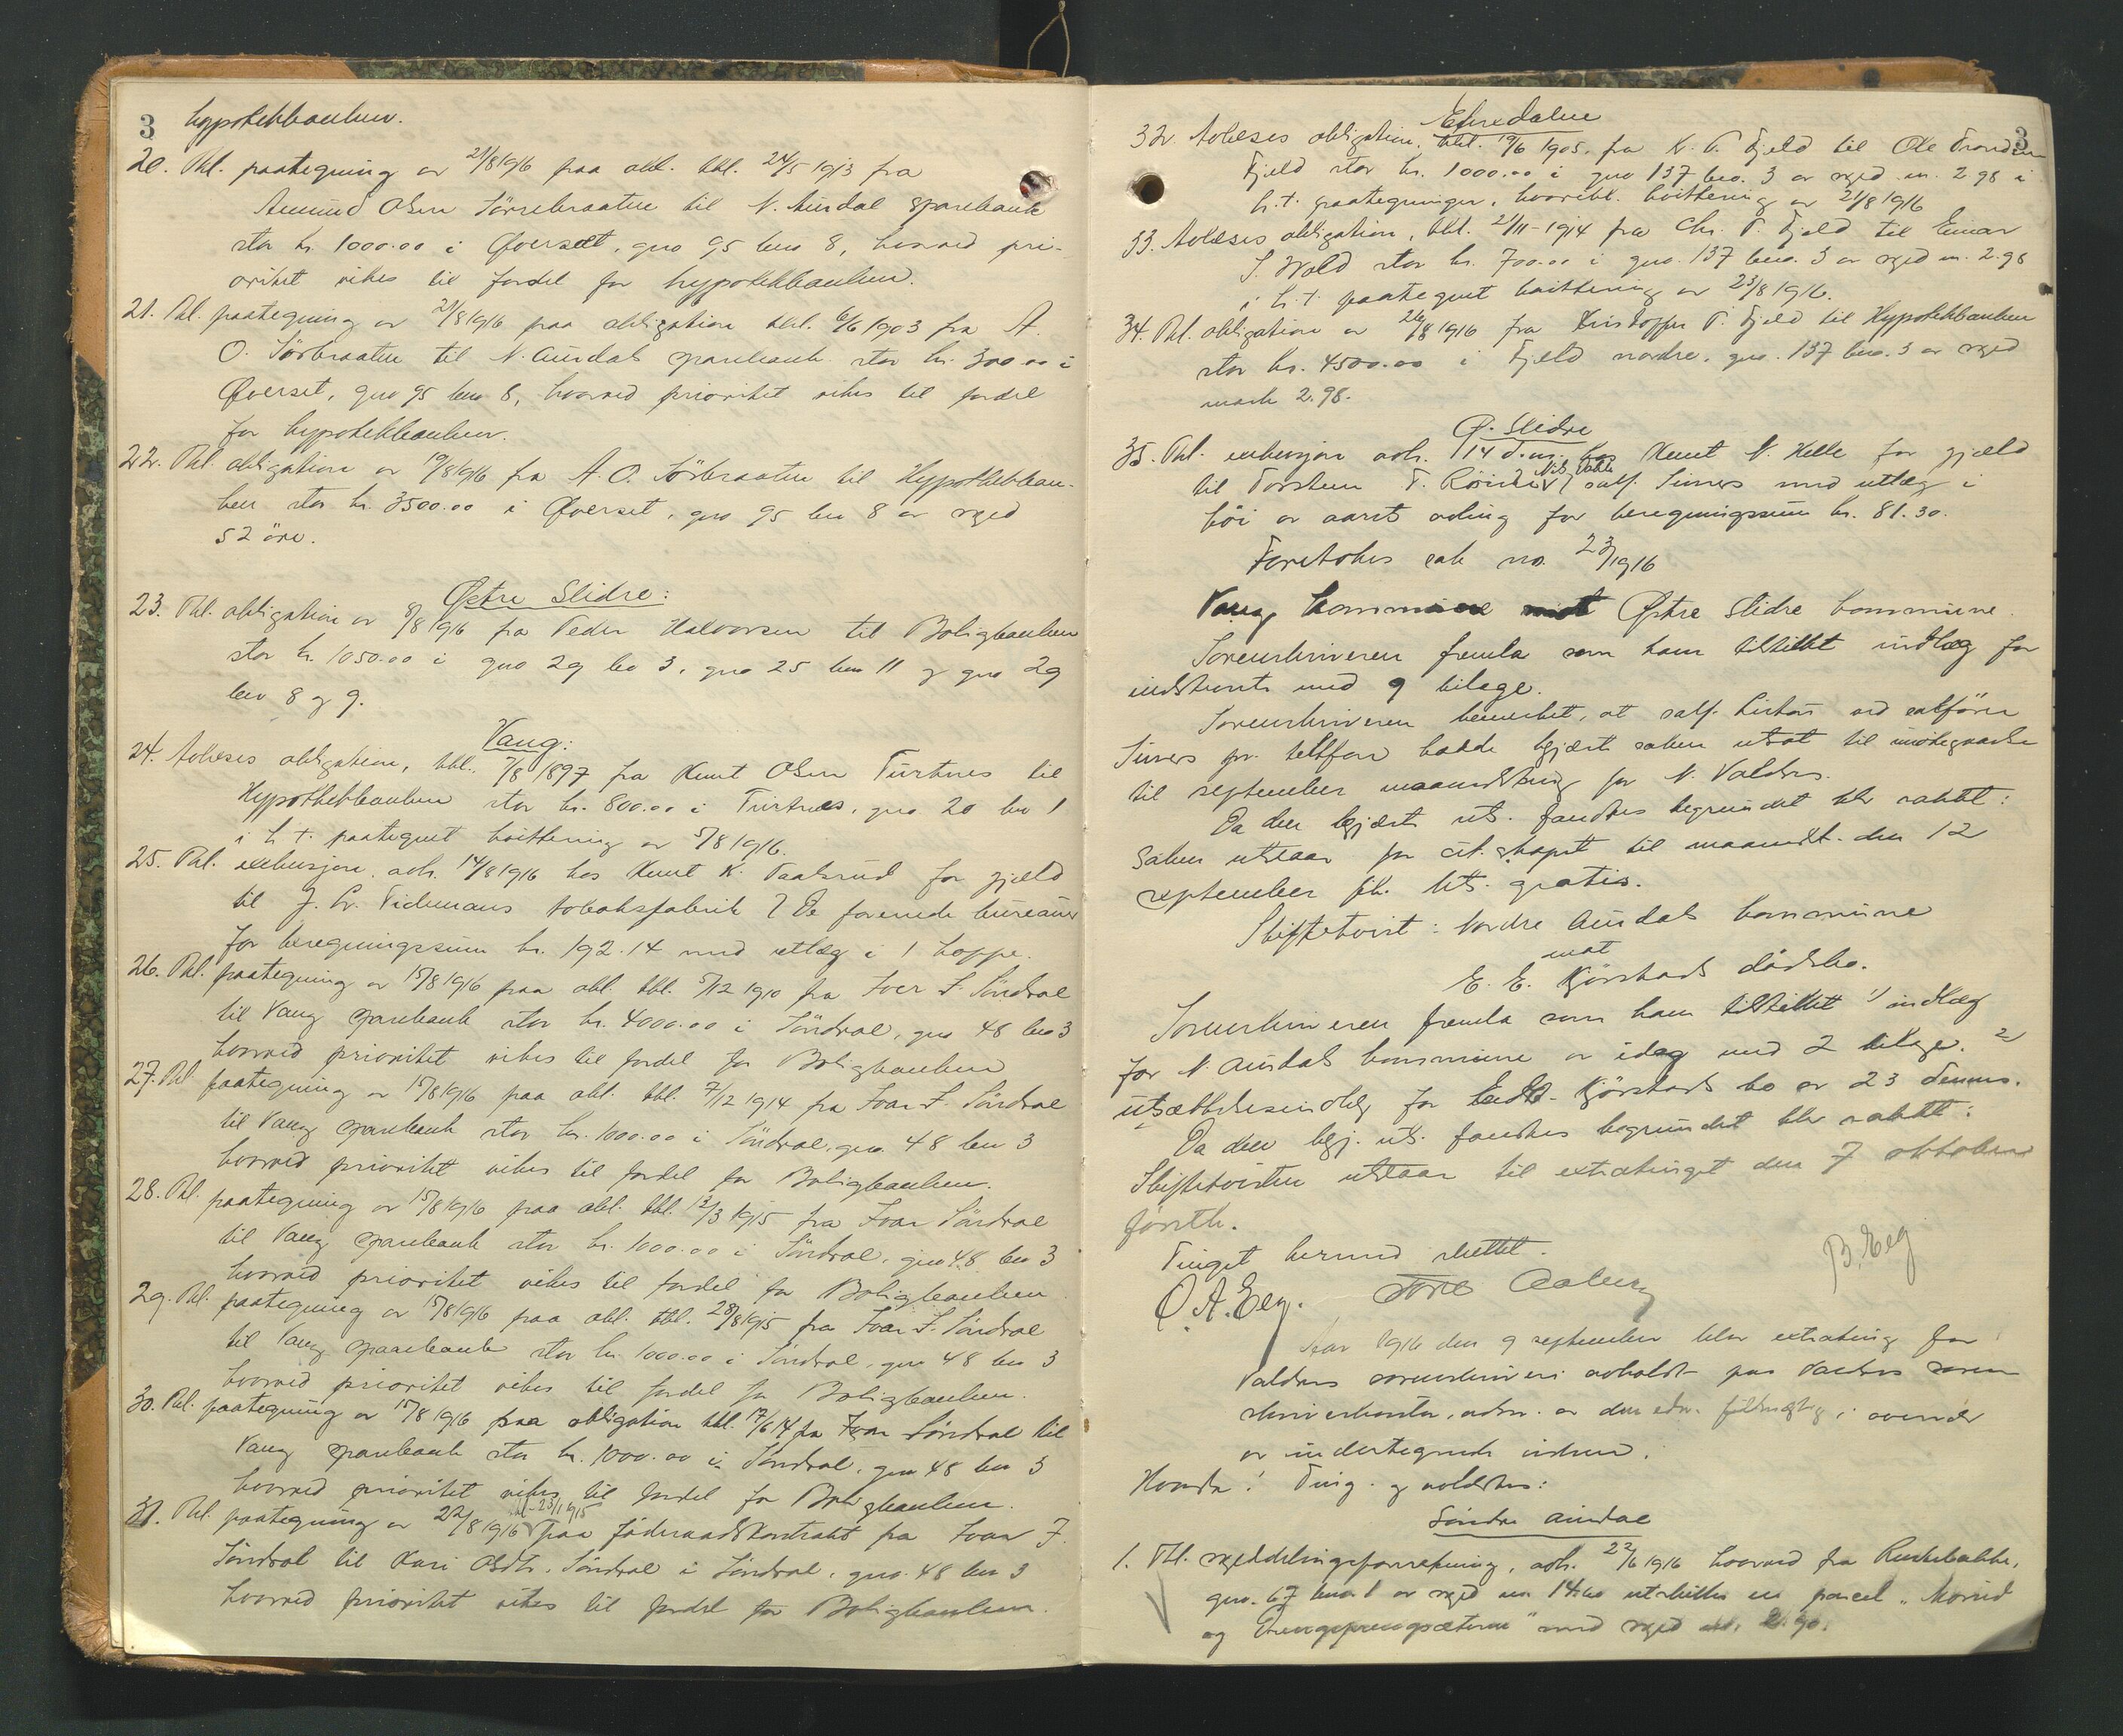 3 hypothekbanken.
20. Thl. paategning av 21/8 1916 paa obl. thl. 24/5 1913 fra
Amund Olsen Sörrebraaten til N. Aurdal sparebank
stor kr. 1000.00 i Øverset, gno 95 bno 8, hvorved pri-
oritet vikes til fordel for hypothekbanken.
21. Thl. paategning av 21/8 1916 paa obligation thl. 6/6 1903 fra A.
O. Sörbraaten til N. Aurdals sparebank stor kr. 300.00 i
Øverset, gno 95 bno 8, hvorved prioritet vikes til fordel
for hypothekbanken.
22. Thl. obligation av 19/8 1916 fra A. O. Sörbraaten til Hypothekban-
ken stor kr. 3500.00 i Øverset, gno 95 bno 8 av skyld
52 öre.
Østre Slidre:
23. Thl. obligation av 8/8 1916 fra Peder Halvorsen til Boligbanken
stor kr. 1050.00 i gno 29 bno 3, gno 25 bno 11 og gno 29
bno 8 og 9.
Vang:
24. Avlæses obligation, thl. 7/8 1897 fra Knut Olsen Turtnes til
Hypothekbanken stor kr. 800.00 i Turtnes, gno 20 bno 1
i h. t. paategnet kvittering av 5/8 1916.
25. Thl. exekusjon avh. 14/8 1916 hos Knut K. for gjæld
til J. L. Tidemans tobaksfabrik De forenede bureauer
for beregningssum kr. 192.14 med utlæg i 1 hoppe.
26. Thl. paategning av 15/8 1916 paa obl. thl. 5/12 1910 fra Iver I. Söndrol
til Vang sparebank stor kr. 4000.00 i Söndrol, gno 48 bno 3
hvorved prioritet vikes til fordel for Boligbanken
27. Thl. paategning av 15/8 1916 paa obl. thl. 7/12 1914 fra Ivar I. Söndrol
til Vang sparebank stor kr. 1000.00 i Söndrol, gno. 48 bno 3
hvorved prioritet vikes til fordel for Boligbanken.
28. Thl. paategning av 15/8 1916 paa obl. thl. 12/3 1915 fra Ivar Söndrol
til Vang sparebank stor kr. 1000.00 i Söndrol, gno 48 bno 3
hvorved prioritet vikes til fordel for Boligbanken
29. Thl. paategning av 15/8 1916 paa obl. thl. 28/8 1915 fra Ivar I. Söndrol
til Vang sparebank stor kr. 1000.00 i Söndrol, gno 48 bno 3
hvorved prioritet vikes til fordel for Boligbanken.
30. Thl. paategning av 15/8 1916 paa obligation thl. 17/6 14 fra Ivar Söndrol til
Vang sparebank stor kr. 1000.00 i Söndrol, gno 48 bno 3
hvorved prioritet vikes til fordel for Boligbanken.
thl. 23/1 1915
31. Thl. paategning av 22/8 1916 paa föderaadskontrakt fra Ivar I.
Söndrol til Kari Olsdtr. Söndrol i Söndrol, gno. 48 bno 3
hvorved prioritet vikes til fordel for Boligbanken.
3
Etnedalen
32. Avlæses obligation, thl. 19/6 1905, fra K. T. Fjeld til Ole Trondsen
Fjeld stor kr. 1000.00 i gno 137 bno. 3 av skyld m. 2.98 i
h. t. paategninger, hvoriblt. kvittering av 21/8 1916
33. Avlæses obligation, thl. 2/11-1914 fra Chr. T. Fjeld til Einar
I. Wold stor kr. 700.00 i gno. 137 bno. 3 av skyld m. 2.98
i h. t. paategnet kvittering av 23/8 1916.
34. Thl. obligation av 26/8 1916 fra Kristoffer T. Fjeld til Hypothekbanken
stor kr. 4500.00 i Fjeld nordre, gno. 137 bno. 3 av skyld
mark 2.98.
Ø. Slidre
35. Thl. exekusjon avh. 14 d.m. hos Knut N. Helle for gjæld
til Torstein T. Röine sakf. Siinrs med utlæg i
höi av aarets avling for beregningssum kr. 81.30.
Foretokes sak no. 23/1916
Vang kommune mot Østre Slidre kommune
Sorenskriveren fremla som ham tilstillet indlæg for
indstevnte med 9 bilage.
Sorenskriveren bemerket, at sakf. ved sakförer
pr. telefon hadde begjært saken utsat til imötegaaelse
til september maanedsting for N. Valdres.
Da den begjærte uts. fandtes begrundet blev avsagt:
Saken utstaar for cit. skapet til maanedst. den 12
september fk. Uts. gratis.
Skiftetvist: Nordre Aurdals kommune
mot
E. E. Kjörstads dödsbo.
Sorenskriveren fremla som ham tilstillet 1) indlæg
for N. Aurdals kommune av idag med 2 bilage. 2)
utsættelsesindlæg for Kjörstads bo av 23 dennes.
Da den begj. uts. fandtes begrundet blev avsagt:
Skiftetvisten utstaar til extratinget den 7 oktober
förstk.
Tinget hermed sluttet.
B. Eeg
O. A. Eeg. Aaberg
Aar 1916 den 9 september blev extrating for
Valdres sorenskriveri avholdt paa Valdres soren
skriverkontor, adm. av den edsv. fuldmægtig i overvær
av undertegnede vidner.
Hvorda! Ting. og avlæstes:
Söndre Aurdal
1. Thl. skylddelingsforretning, avh. 22/6 1916 hvorved fra Ruskebakke,
gno. 67 bno 1 av skyld m 14.60 utskilles en parcel "
og " med skyld m. 2.90.